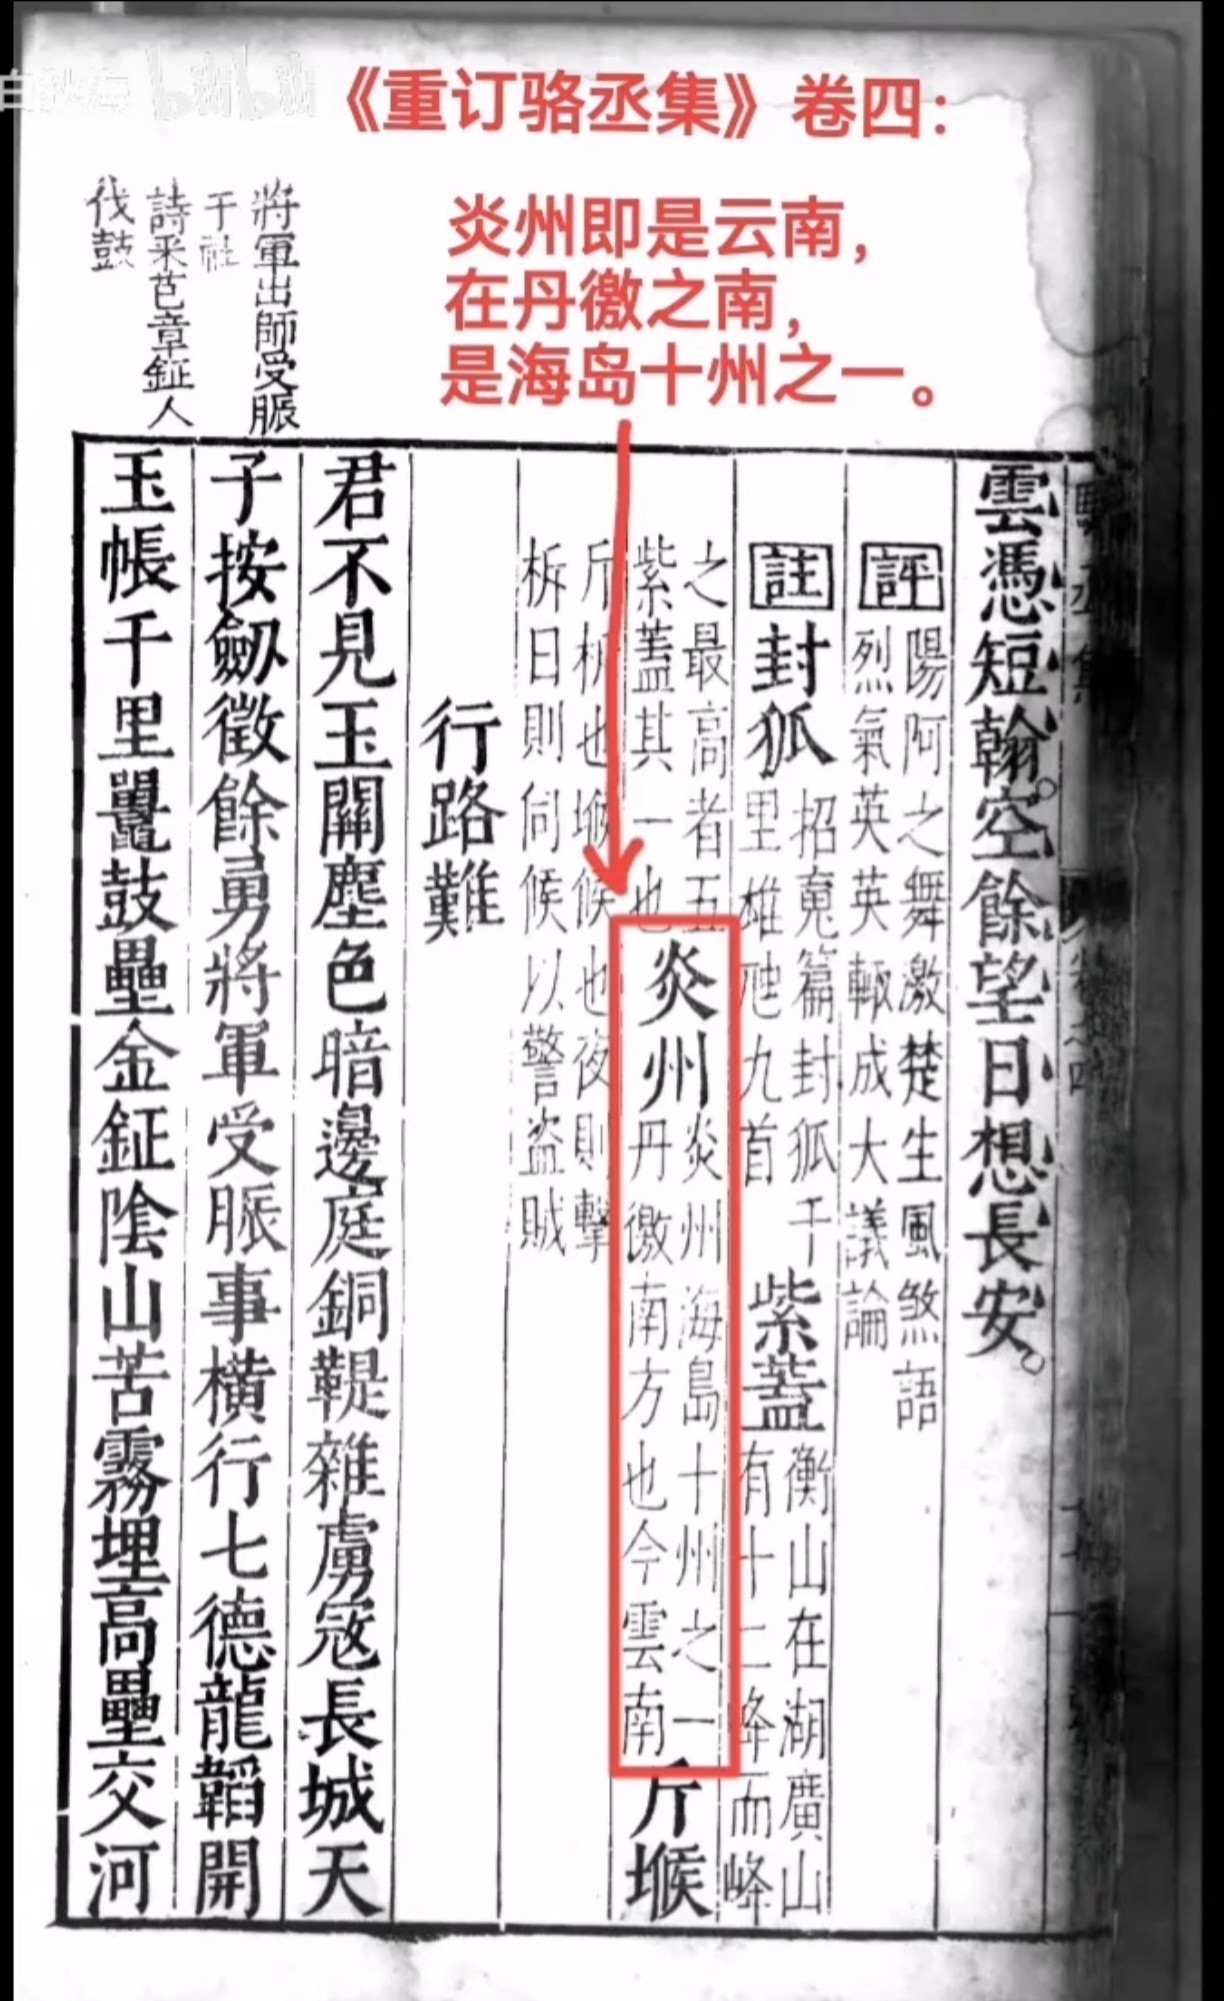 《重订骆丞集》卷四：
炎州即是云南，
在丹徼之南，
是海岛十州之一。
將軍出師受脤
于社
詩采芑章鉦人
伐鼓
雲憑短翰。空餘望日想長安。
評
陽阿之舞激楚生風煞語
烈氣英英輙成大議論
註封狐
招䰟篇封狐千
里雄虺九首
紫蓋
衡山在湖廣山
有十二峰而峰
之最高者五
紫蓋其一也
炎州
炎州海島十州之一
丹徼南方也今雲南
斤堠
斤柝也堠候也夜則擊
柝日則伺候以警盗賊
行路難
君不見玉關塵色暗邊庭銅鞮雜虜寇長城天
子按劒徵餘勇將軍受脈事橫行七德龍韜開
玉帳千里鼉鼓壘金鉦陰山苦霧埋高壘交河